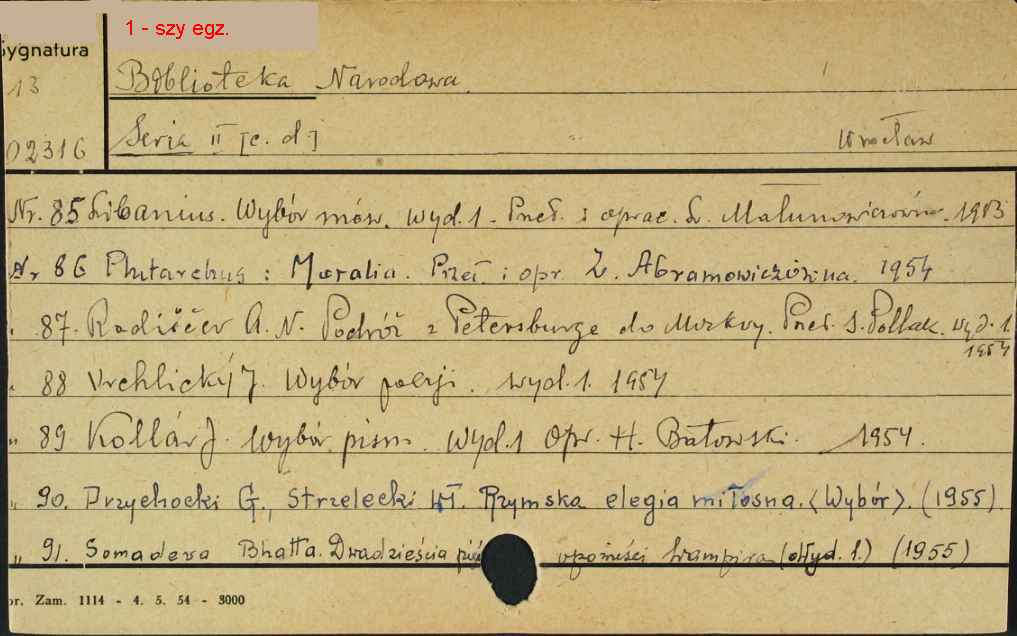 1 - szy egz.
Sygnatura
13
02316
Biblioteka Narodowa.
Seria II [c. d.]
Wrocław
Nr. 85 Libanius. Wybór mów. wyd. 1. Przeł. i oprac. L. Małunowiczówna. 1953
Nr 86 Plutarchus: Moralia. Przeł. i opr. Z. Abramowiczówna. 1954
" 87. Radiščev A. N. Podróż z Petersburga do Moskwy. Przeł. S. Pollak. wyd. 1
1954
" 88 Vrchlický J. Wybór poezji. wyd. 1. 1954
" 89 Kollár J. Wybór pism. Wyd. 1 Opr. H. Batowski. 1954.
" 90. Przychocki G., Strzelecki Wł. Rzymska elegia miłosna. <Wybór>. (1955).
" 91. Somadeva Bhatta. Dwadzieścia opowieści Wampira (Wyd. 1.) (1955)
or. Zam. 1114 - 4. 5. 54 - 3000